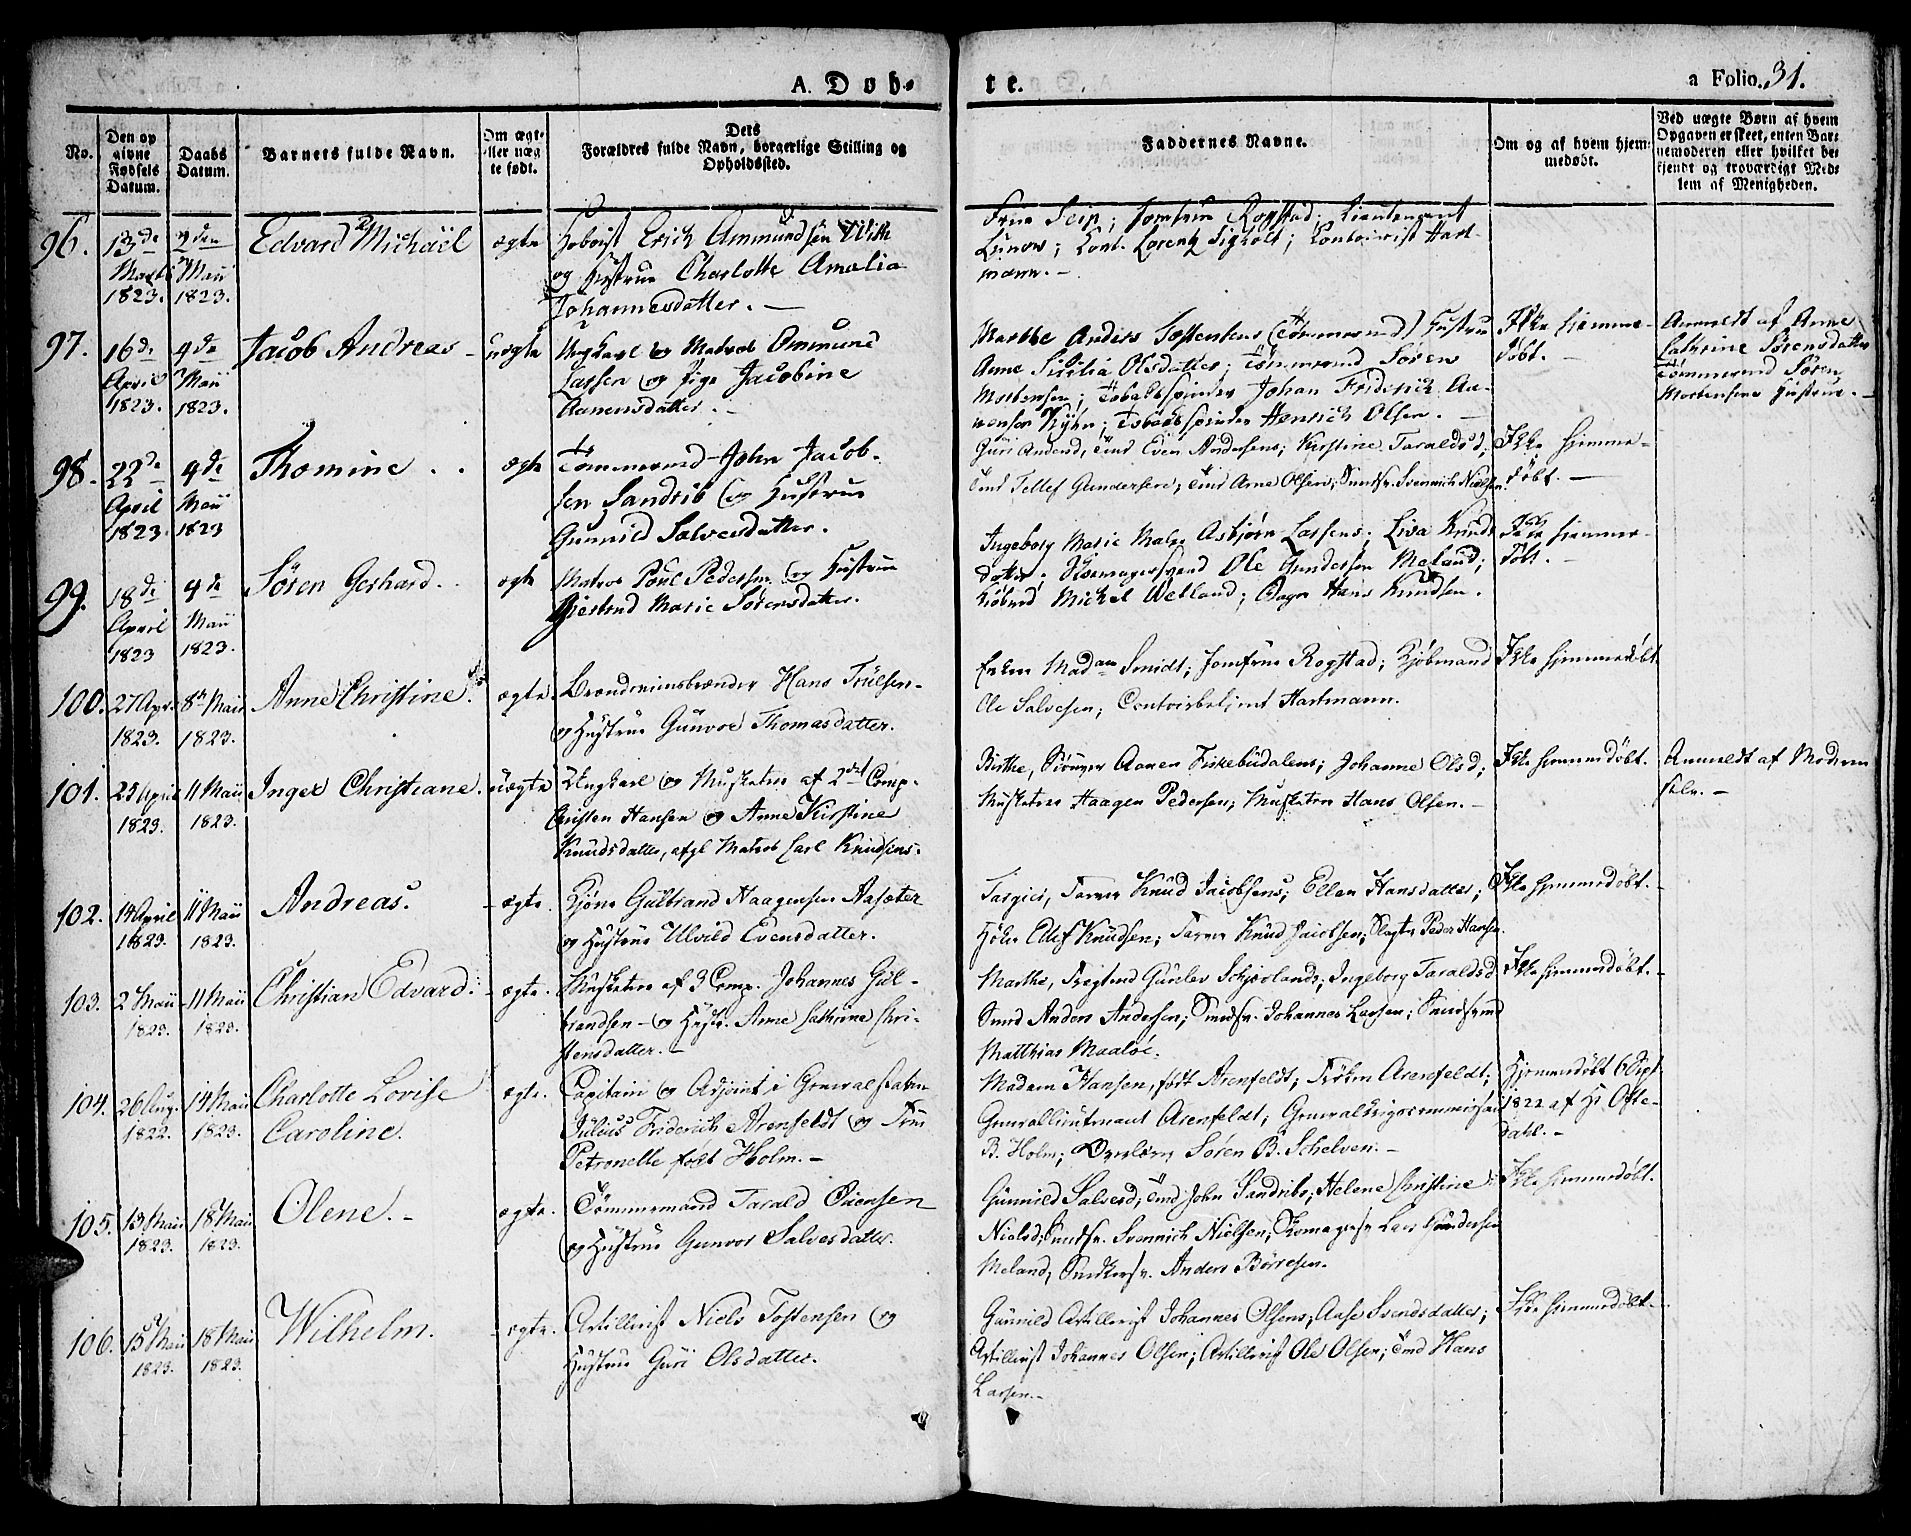 A. Døb-
te.
a Folio. 31.
No.
Den op
givne
Fødsels
Datum.
Daabs
Datum.
Barnets fulde Navn.
Om ægte
eller uæg
te født.
Dets
Forældres fulde Navn, borgerlige Stilling og
Opholdssted.
Faddernes Navne.
Om og af hvem hjem-
medøbt.
Ved uægte Børn af hvem
Opgaven er skeet, enten Bar-
nemoderen eller hvilket be-
kjendt og troværdigt Med-
lem af Menigheden.
96. 13de Marts 1823. Maii 1823. Edvard Michaël ægte Hoboist Erich Ammundsen With
og Hustrue Charlotte Amalia
Johannesdatter. -
Seip; Jomfrue Rogstad; Lieutenant
Lorentz Sigholt; Contoirist Hart-
mann. -
97. 16de April 1823. 4de Maii 1823. Jacob Andreas - uægte Ungkarl og Matros Ommund
Larsen og Pige Jacobine
Aanensdatter. -
Marthe Anders Tostensens (Tømmermand) Hustrue
Anne Sicilia Olsdatter; Tømmermand Søren
Mortensen; Tobakspinder Johan Friderich Aa-
nensen Kyhn; Tobakspinder Henrich Olsen. -
Ikke hiemme-
døbt. -
Anmeldt af Anne
Cathrine Sørensdatter
Tømmermd Søren
Mortensens Hustrue. -
98. 22de April 1823. 4de Maii 1823 Thomine . . ægte Tømmermd John Jacob-
sen Sandrib og Hustrue
Gunnild Salvesdatter.
Guri Andersd, Tmd Even Andersens; Kirstine Taraldsd;
Tmd Tellef Gundersen; Tmd Arne Olsen; Smedsv. Svennich Nielsen
Ikke hiemme-
døbt. -
99. 18de April 1823 4de Maii 1823. Søren Gerhard. . ægte Matros Poul Pedersen og Hustrue
Giertrud Marie Sørensdatter.
Ingeborg Marie Maler Asbjørn Larsens; Lisa Knuds
datter; Skomagersvend Ole Gundersen Meland;
Kiøbmd Michel Wetland; Bager Hans Knudsen.
Ikke hiemme-
døbt. -
100. 27 Apr. 1823. 8de Maii 1823. Anne Christine. ægte. Brændeviinsbrænder Hans Truelsen-
og Hustrue Gunvor Thomasdatter.
Enken Madam Smidt; Jomfrue Rogstad; Kjøbmand
Ole Salvesen; Contoirbetjent Hartmann.
Ikke hjemmedøbt
101. 25 April 1823. 11 Maii 1823. Inger Christiane. uægte Ungkarl og Musketeer af 2det Comp.
Christen Hansen og Anne Kirstine
Knudsdatter, afgl Matros Carl Knudsens.
Birthe, Aanen Fiskebudalens; Johanne Olsd;
Musketeer Haagen Pedersen; Musketeer Hans Olsen. -
Ikke hjemmedøbt.
Anmeldt af Moderen
selv. -
102. 14 April 1823. 11 Maii 1823. Andreas. - ægte. Gulbrand Haagensen Aasæter
og Hustrue Ulvild Evensdatter.
Farver Knud Jacobsens; Ellen Hansdatter;
Edlef Knudsen; Farver Knud Jacobsen; Slagter Peder Hansen
Ikke hjemmedøbt.
103. 2 Maii 1823. 11 Maii 1823. Christian Edvard. - ægte. Musketeer af 3 Comp. Johannes Gul-
brandsen - og Hustr. Anne Cathrine Chri-
stensdatter. -
Marthe, Gunlev Ingeborg Taraldsd
Smed Anders Andersen; Smedsv. Johannes Larsen; Smedsvend
Matthias Maaløe.
Ikke hjemmedøbt. -
104. 26 Aug. 1822. 14 Maii 1823. Charlotte Lovise
Caroline.
ægte. Capitain og Adjoint i Generalstaben
Julius Friderich Arenfeldt og Frue
Petronelle født Holm. -
Madam Hansen, født Arenfeldt; Frøken Arenfeldt;
Generallieutenant Arenfeldt; Generalkrigscommissair
B. Holm; Søren B. Schelven. -
Hjemmedøbt 6 Sept
1822 af Hr Ofte-
dahl. -
105. 13 Maii 1823. 18 Maii 1823. Olene. - ægte. Tømmermand Tarald Evensen
og Hustrue Gunvor Salvesdatter.
Gunnild Salvesd; Tmd John Sandribs; Helene Christine
Nielsd; Smedsv. Svennich Nielsen; Skomagersv Lars Gundersen
Meland; Anders Børresen.
Ikke hjemmedøbt.
106. 15 Maii 1823. 18 Maii 1823. Wilhelm. - ægte. Artillerist Niels Tostensen og
Hustrue Guri Olsdatter.
Gunnild Artillerist Johannes Olsens; Aase Svendsdatter;
Artillerist Johannes Olsen; Artillerist Ole Olsen; Tmd Hans
Larsen. -
Ikke hjemmedøbt. -